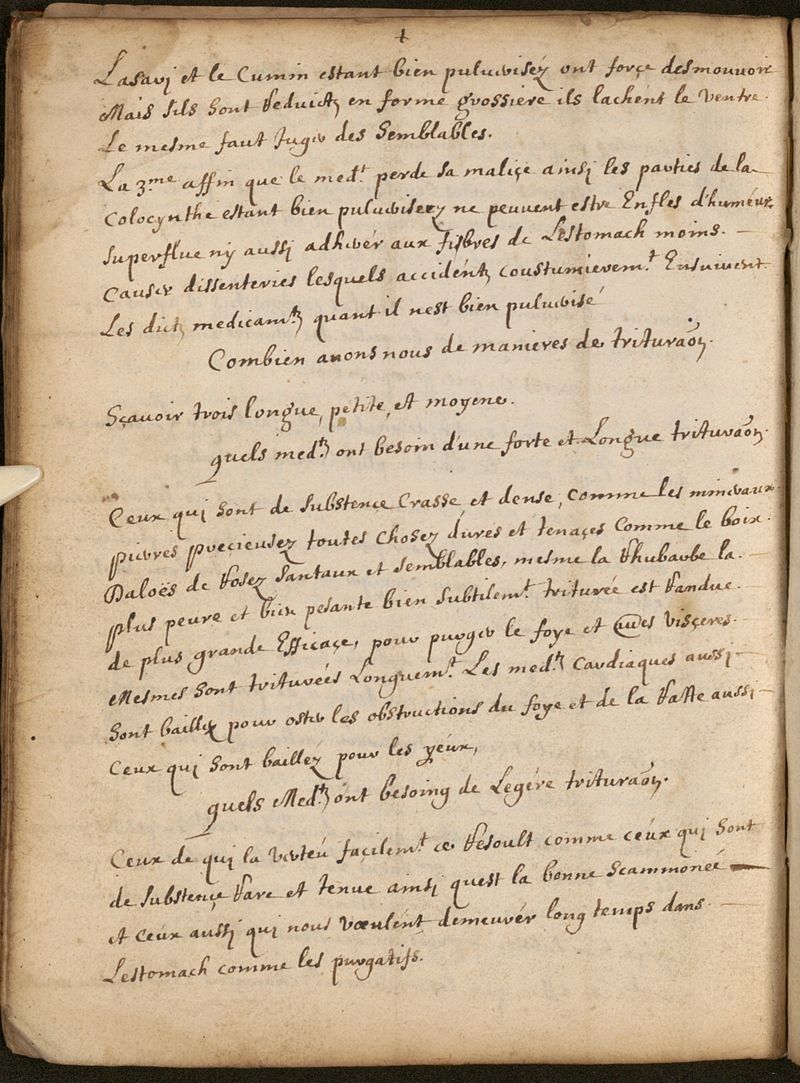 4
Lasarj et le Cumin estant bien puluerisez ont force desmouuoir
Mais sils sont Reduictz en forme grossiere ils lachent le Ventre.
Le mesme faut Juger des Semblables.
La 3me affin que le medt perde sa maliçe ainsj les parties de la
Colocynthe estant bien puluerisez ne peuuent estre Enfles d'huméur
superflue nÿ aussj adherér aux fisbres de Lestomach moins.
Causer dissenteries lesquels accidéntz coustumieremt Ensuiuent
Les dictz medicamtz quant il nest bien puluerisé
Combien auons nous de manieres de trituraõn.
Sçauoir trois longue, petite, et moyene.
quels medtz ont besoin d'une forte et Longue trituraõn.
Ceux quj sont de substençe Crasse, et dense, comme les mineraux
pierres precieusez toutes chosez dures et tenaçes Comme le boix
Daloës de Rosez santaux et semblables, mesme la Rhubarbe la
plus peure et bien pesante bien subtilemt triturée est Randue
de plus grande Efficaçe, pour purger le foye et visçeres.
Mesmes sont triturées Longuemt Les medtz Cardiaques aussj
sont baillez pour oster les obstructions du foye et de la Ratte aussj
Ceux quj sont baillez pour les yéux,
quels Medtz ont besoing de Legére trituraõn.
Ceux de quj la verteu facilemt ce Resoult comme ceux quj sont
de substençe Rare et tenue ainsj quest la bonne scammonéé
et ceux aussj quj nous vœulent demeurér long temps dans
Lestomach comme les purgatifs.